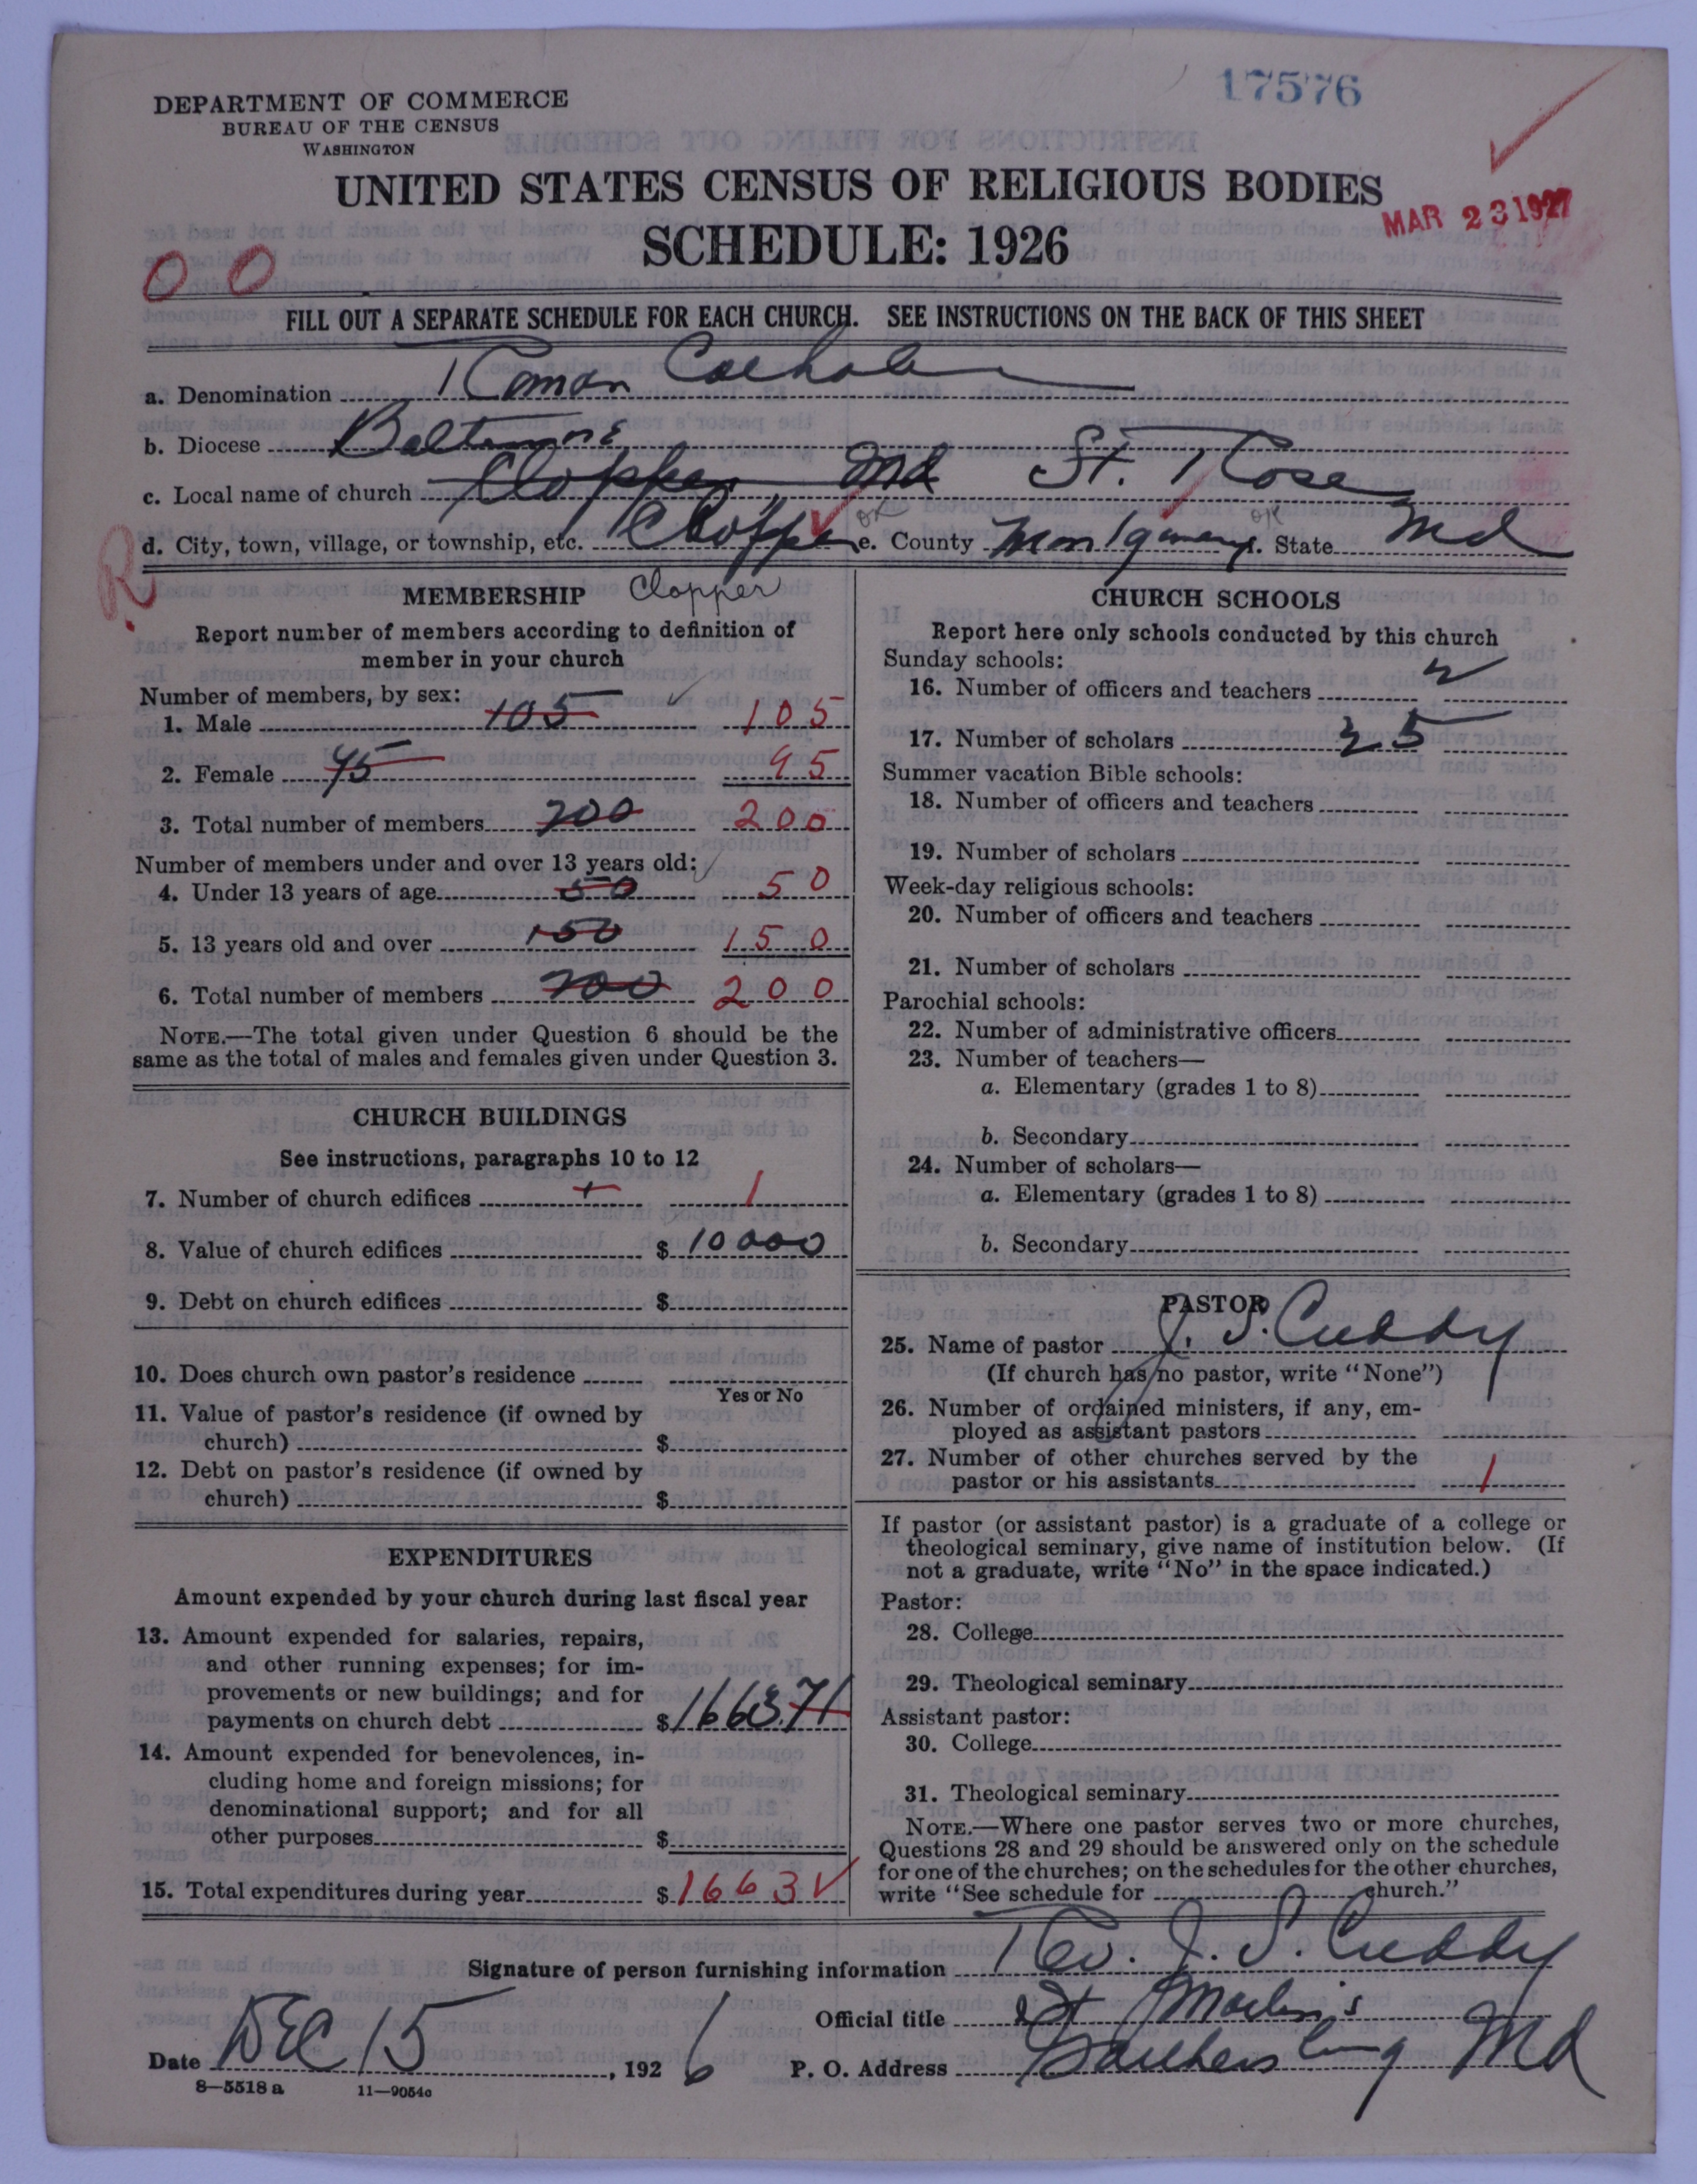 17576
DEPARTMENT OF COMMERCE
BUREAU OF THE CENSUS
WASHINGTON
UNITED STATES CENSUS OF RELIGIOUS BODIES
MAR 23 1927
SCHEDULE: 1926
0 0
FILL OUT A SEPARATE SCHEDULE FOR EACH CHURCH. SEE INSTRUCTIONS ON THE BACK OF THIS SHEET
a. Denomination Roman Catholic
b. Diocese Baltimore
c. Local name of church Clopper Md St. Rose
d. City, town, village, or township, etc. Clopper OK e. County Montgomery OK f. State Md
R
MEMBERSHIP Clopper
Report number of members according to definition of
member in your church
Number of members, by sex:
1. Male 105 105
2. Female 95 95
3. Total number of members 200 200
Number of members under and over 13 years old:
4. Under 13 years of age 50 50
5. 13 years old and over 150 150
6. Total number of members 200 200
NOTE.—The total given under Question 6 should be the
same as the total of males and females given under Question 3.
CHURCH BUILDINGS
See instructions, paragraphs 10 to 12
7. Number of church edifices 1 1
8. Value of church edifices $ 10000
9. Debt on church edifices $
10. Does church own pastor's residence
Yes or No
11. Value of pastor's residence (if owned by
church) $
12. Debt on pastor's residence (if owned by
church) $
EXPENDITURES
Amount expended by your church during last fiscal year
13. Amount expended for salaries, repairs,
and other running expenses; for im-
provements or new buildings; and for
payments on church debt $ 1663.71
14. Amount expended for benevolences, in-
cluding home and foreign missions; for
denominational support; and for all
other purposes $
15. Total expenditures during year $ 1663
CHURCH SCHOOLS
Report here only schools conducted by this church
Sunday schools:
16. Number of officers and teachers 2
17. Number of scholars 35
Summer vacation Bible schools:
18. Number of officers and teachers
19. Number of scholars
Week-day religious schools:
20. Number of officers and teachers
21. Number of scholars
Parochial schools:
22. Number of administrative officers
23. Number of teachers—
a. Elementary (grades 1 to 8)
b. Secondary
24. Number of scholars—
a. Elementary (grades 1 to 8)
b. Secondary
PASTOR
25. Name of pastor J. S. Cuddy
(If church has no pastor, write "None")
26. Number of ordained ministers, if any, em-
ployed as assistant pastors
27. Number of other churches served by the
pastor or his assistants 1
If pastor (or assistant pastor) is a graduate of a college or
theological seminary, give name of institution below. (If
not a graduate, write "No" in the space indicated.)
Pastor:
28. College
29. Theological seminary
Assistant pastor:
30. College
31. Theological seminary
NOTE.—Where one pastor serves two or more churches,
Questions 28 and 29 should be answered only on the schedule
for one of the churches; on the schedules for the other churches,
write "See schedule for church."
Signature of person furnishing information Rev. J. S. Cuddy
Official title St Martin's
Date DEC 15, 1926 P. O. Address Gaithersburg Md
8—5518 a 11—9054a